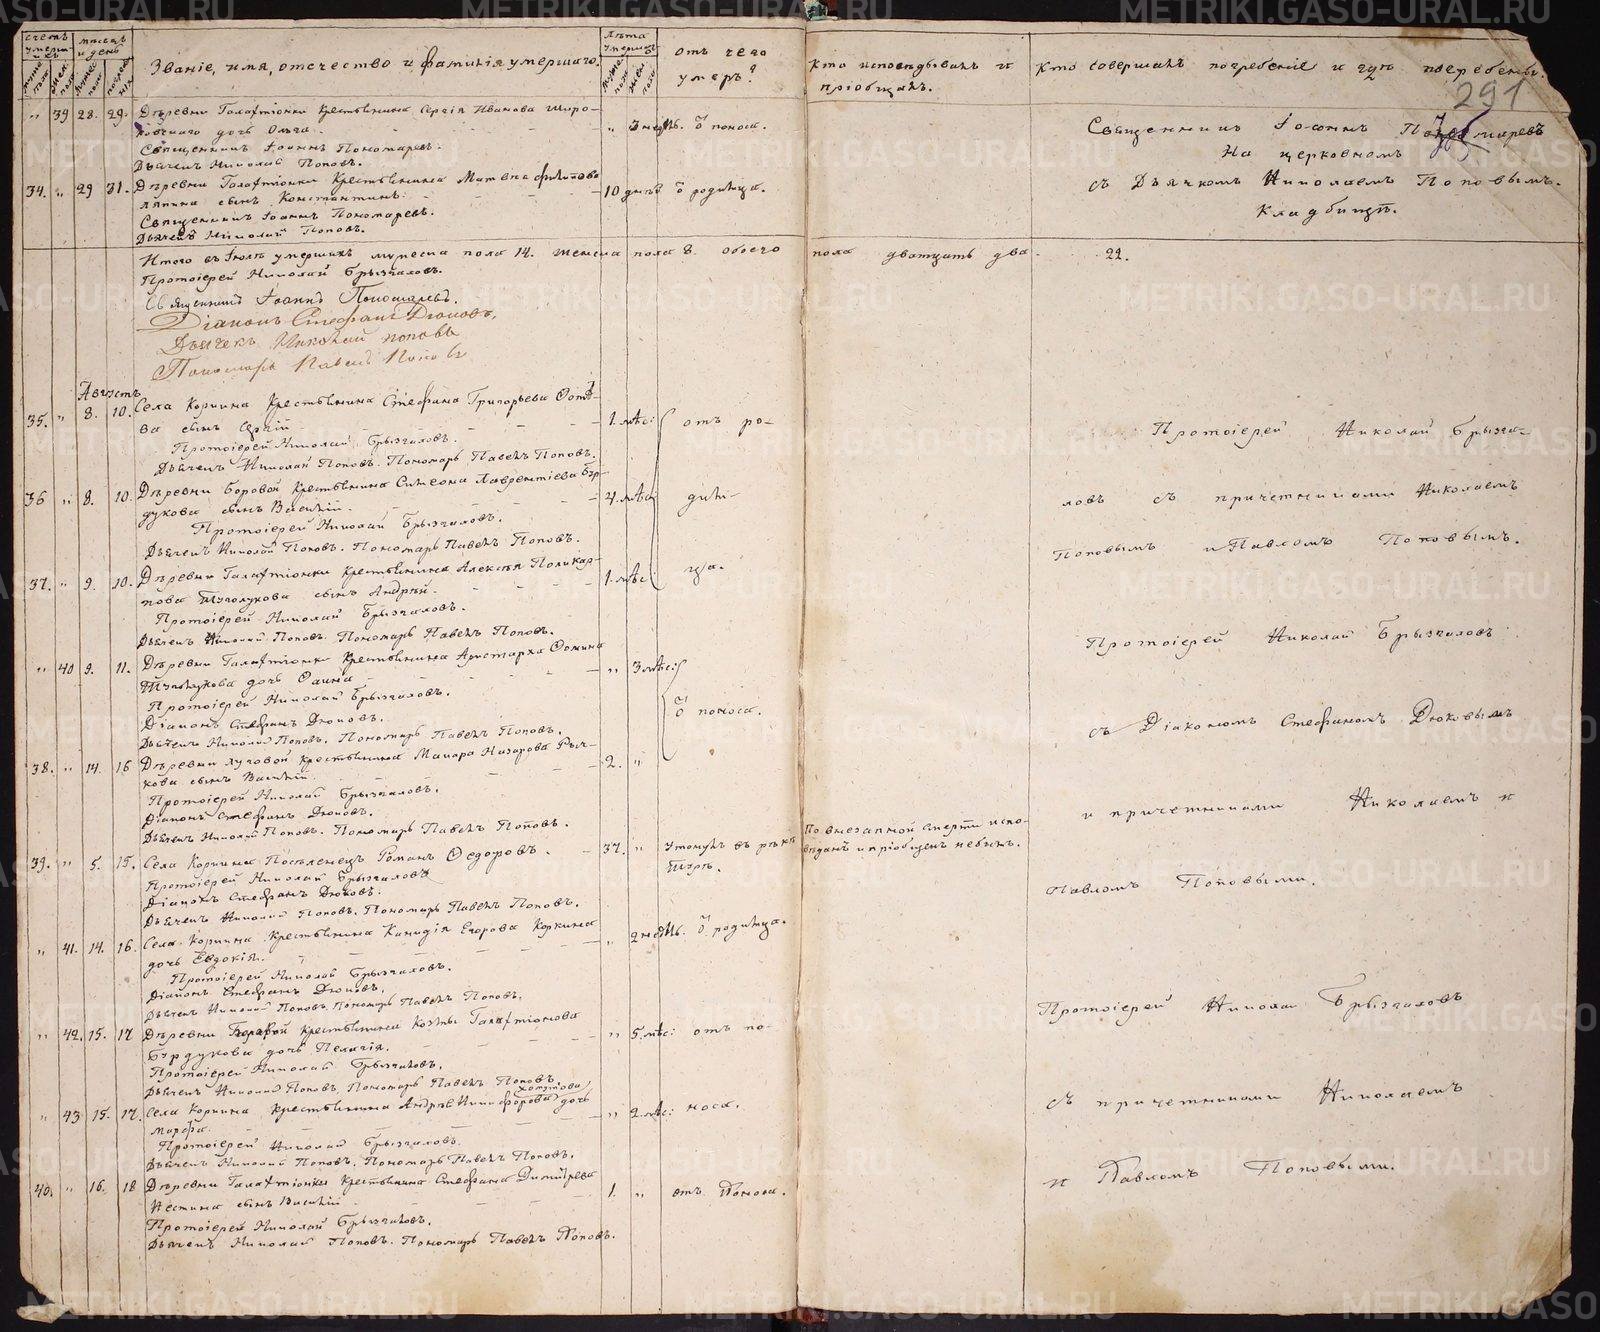 счетъ умершихъ
мѣсяцъ и день
Званіе, имя, отчество и фамилія умершаго.
лѣта умершаго
отъ чего умеръ?
Кто исповѣдывалъ и пріобщалъ.
Кто совершалъ погребеніе и гдѣ погребены.
291
" 39 28. 29. Деревни Галактіонки крестьянина Сергія Иванова
дочь Ольга. " 3 недѣль. ѿ поноса.
Священникъ Іоаннъ Пономаревъ.
Дьячекъ Николай Поповъ.
34. " 29 31. Деревни Галактіонки Крестьянина Матвѣа Филипова
Ляпина сынъ Константинъ. 10 дней ѿ родимца.
Священникъ Іоаннъ Пономаревъ.
Дьячекъ Николай Поповъ.
Священникъ Іоаннъ Пономаревъ
На церковномъ
съ Дьячкомъ Николаемъ Поповымъ.
Кладбищѣ.
Итого въ Іюлѣ умершихъ мужеска пола 14. женска пола 8. обоего пола дватцать два. 22.
Протоіерей Николай Брызгаловъ.
Священникъ Іоаннъ Пономаревъ.
Діаконъ Стефанъ Дюковъ,
Дьячекъ Николай Поповъ
Пономарь Павелъ Поповъ
Августъ
35. " 8. 10. Села Коркина Крестьянина Стефана Григорьева
сынъ Сергій 1. мѣс: отъ ро-
Протоіерей Николай Брызгаловъ.
Дьячекъ Николай Поповъ. Пономарь Павелъ Поповъ.
36 " 8. 10. Деревни Боровой Крестьянина Симеона Лаврентіева Бур-
дукова сынъ Василій. 4. мѣс: дим-
Протоіерей Николай Брызгаловъ.
Дьячекъ Николай Поповъ. Пономарь Павелъ Поповъ.
37. " 9. 10. Деревни Галактіонки крестьянина Алексѣя Поликар-
пова сынъ Андрей. 1. мѣс: ца.
Протоіерей Николай Брызгаловъ.
Дьячекъ Николай Поповъ. Пономарь Павелъ Поповъ.
" 40 9. 11. Деревни Галактіонки Крестьянина Аристарха Фомина
дочь Фаина " 3 мѣс:
Протоіерей Николай Брызгаловъ.
Діаконъ Стефанъ Дюковъ. ѿ поноса.
Дьячекъ Николай Поповъ. Пономарь Павелъ Поповъ.
38. " 14. 16 Деревни Луговой крестьянина Макара Назарова Рыч-
кова сынъ Василій. 2. "
Протоіерей Николай Брызгаловъ.
Діаконъ Стефанъ Дюковъ.
Дьячекъ Николай Поповъ. Пономарь Павелъ Поповъ.
39. " 5. 15. Села Коркина Поселенецъ Романъ Федоровъ. 37. " Утонулъ въ рѣкѣ Турѣ.
По внезапной смерти испо-
вѣданъ и пріобщенъ небылъ.
Протоіерей Николай Брызгаловъ
Діаконъ Стефанъ Дюковъ.
Дьячекъ Николай Поповъ. Пономарь Павелъ Поповъ.
" 41. 14. 16. Села Коркина крестьянина Егорова Коркина
дочь Евдокія. " 2 недѣль. ѿ родимца.
Протоіерей Николай Брызгаловъ.
Діаконъ Стефанъ Дюковъ.
Дьячекъ Николай Поповъ. Пономарь Павелъ Поповъ.
" 42. 15. 17 Деревни Боровой крестьянина Козмы Галактіонова
Бурдукова дочь Пелагія. " 5. мѣс: отъ по-
Протоіерей Николай Брызгаловъ.
Дьячекъ Николай Поповъ. Пономарь Павелъ Поповъ.
" 43 15. 17. Села Коркина Крестьянина Андрея Никифорова дочь
Марфа. " 2. мѣс: носа.
Протоіерей Николай Брызгаловъ.
Дьячекъ Николай Поповъ. Пономарь Павелъ Поповъ.
40. " 16. 18 Деревни Галактіонки крестьянина Стефана Димитрева
сынъ Василій 1. " отъ поноса.
Протоіерей Николай Брызгаловъ.
Дьячекъ Николай Поповъ. Пономарь Павелъ Поповъ.
Протоіерей Николай Брызга-
ловъ съ причетниками Николаемъ
Поповымъ и Павломъ Поповымъ.
Протоіерей Николай Брызгаловъ
съ Діакономъ Стефаномъ Дюковымъ
и причетниками Николаемъ и
Павломъ Поповыми.
Протоіерей Николай Брызгаловъ
съ причетниками Николаемъ
и Павломъ Поповыми.
METRIKI.GASO-URAL.RU